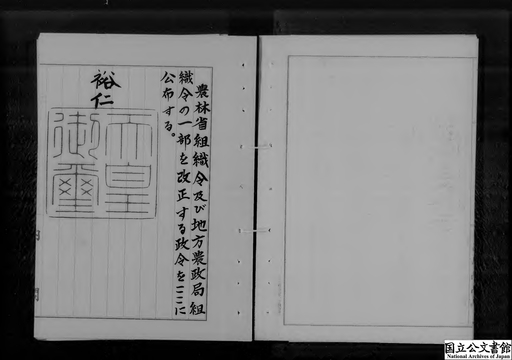 農林省組織令及び地方農政局組
織令の一部を改正する政令をここに
公布する。
裕仁
天皇
御璽
国立公文書館
National Archives of Japan